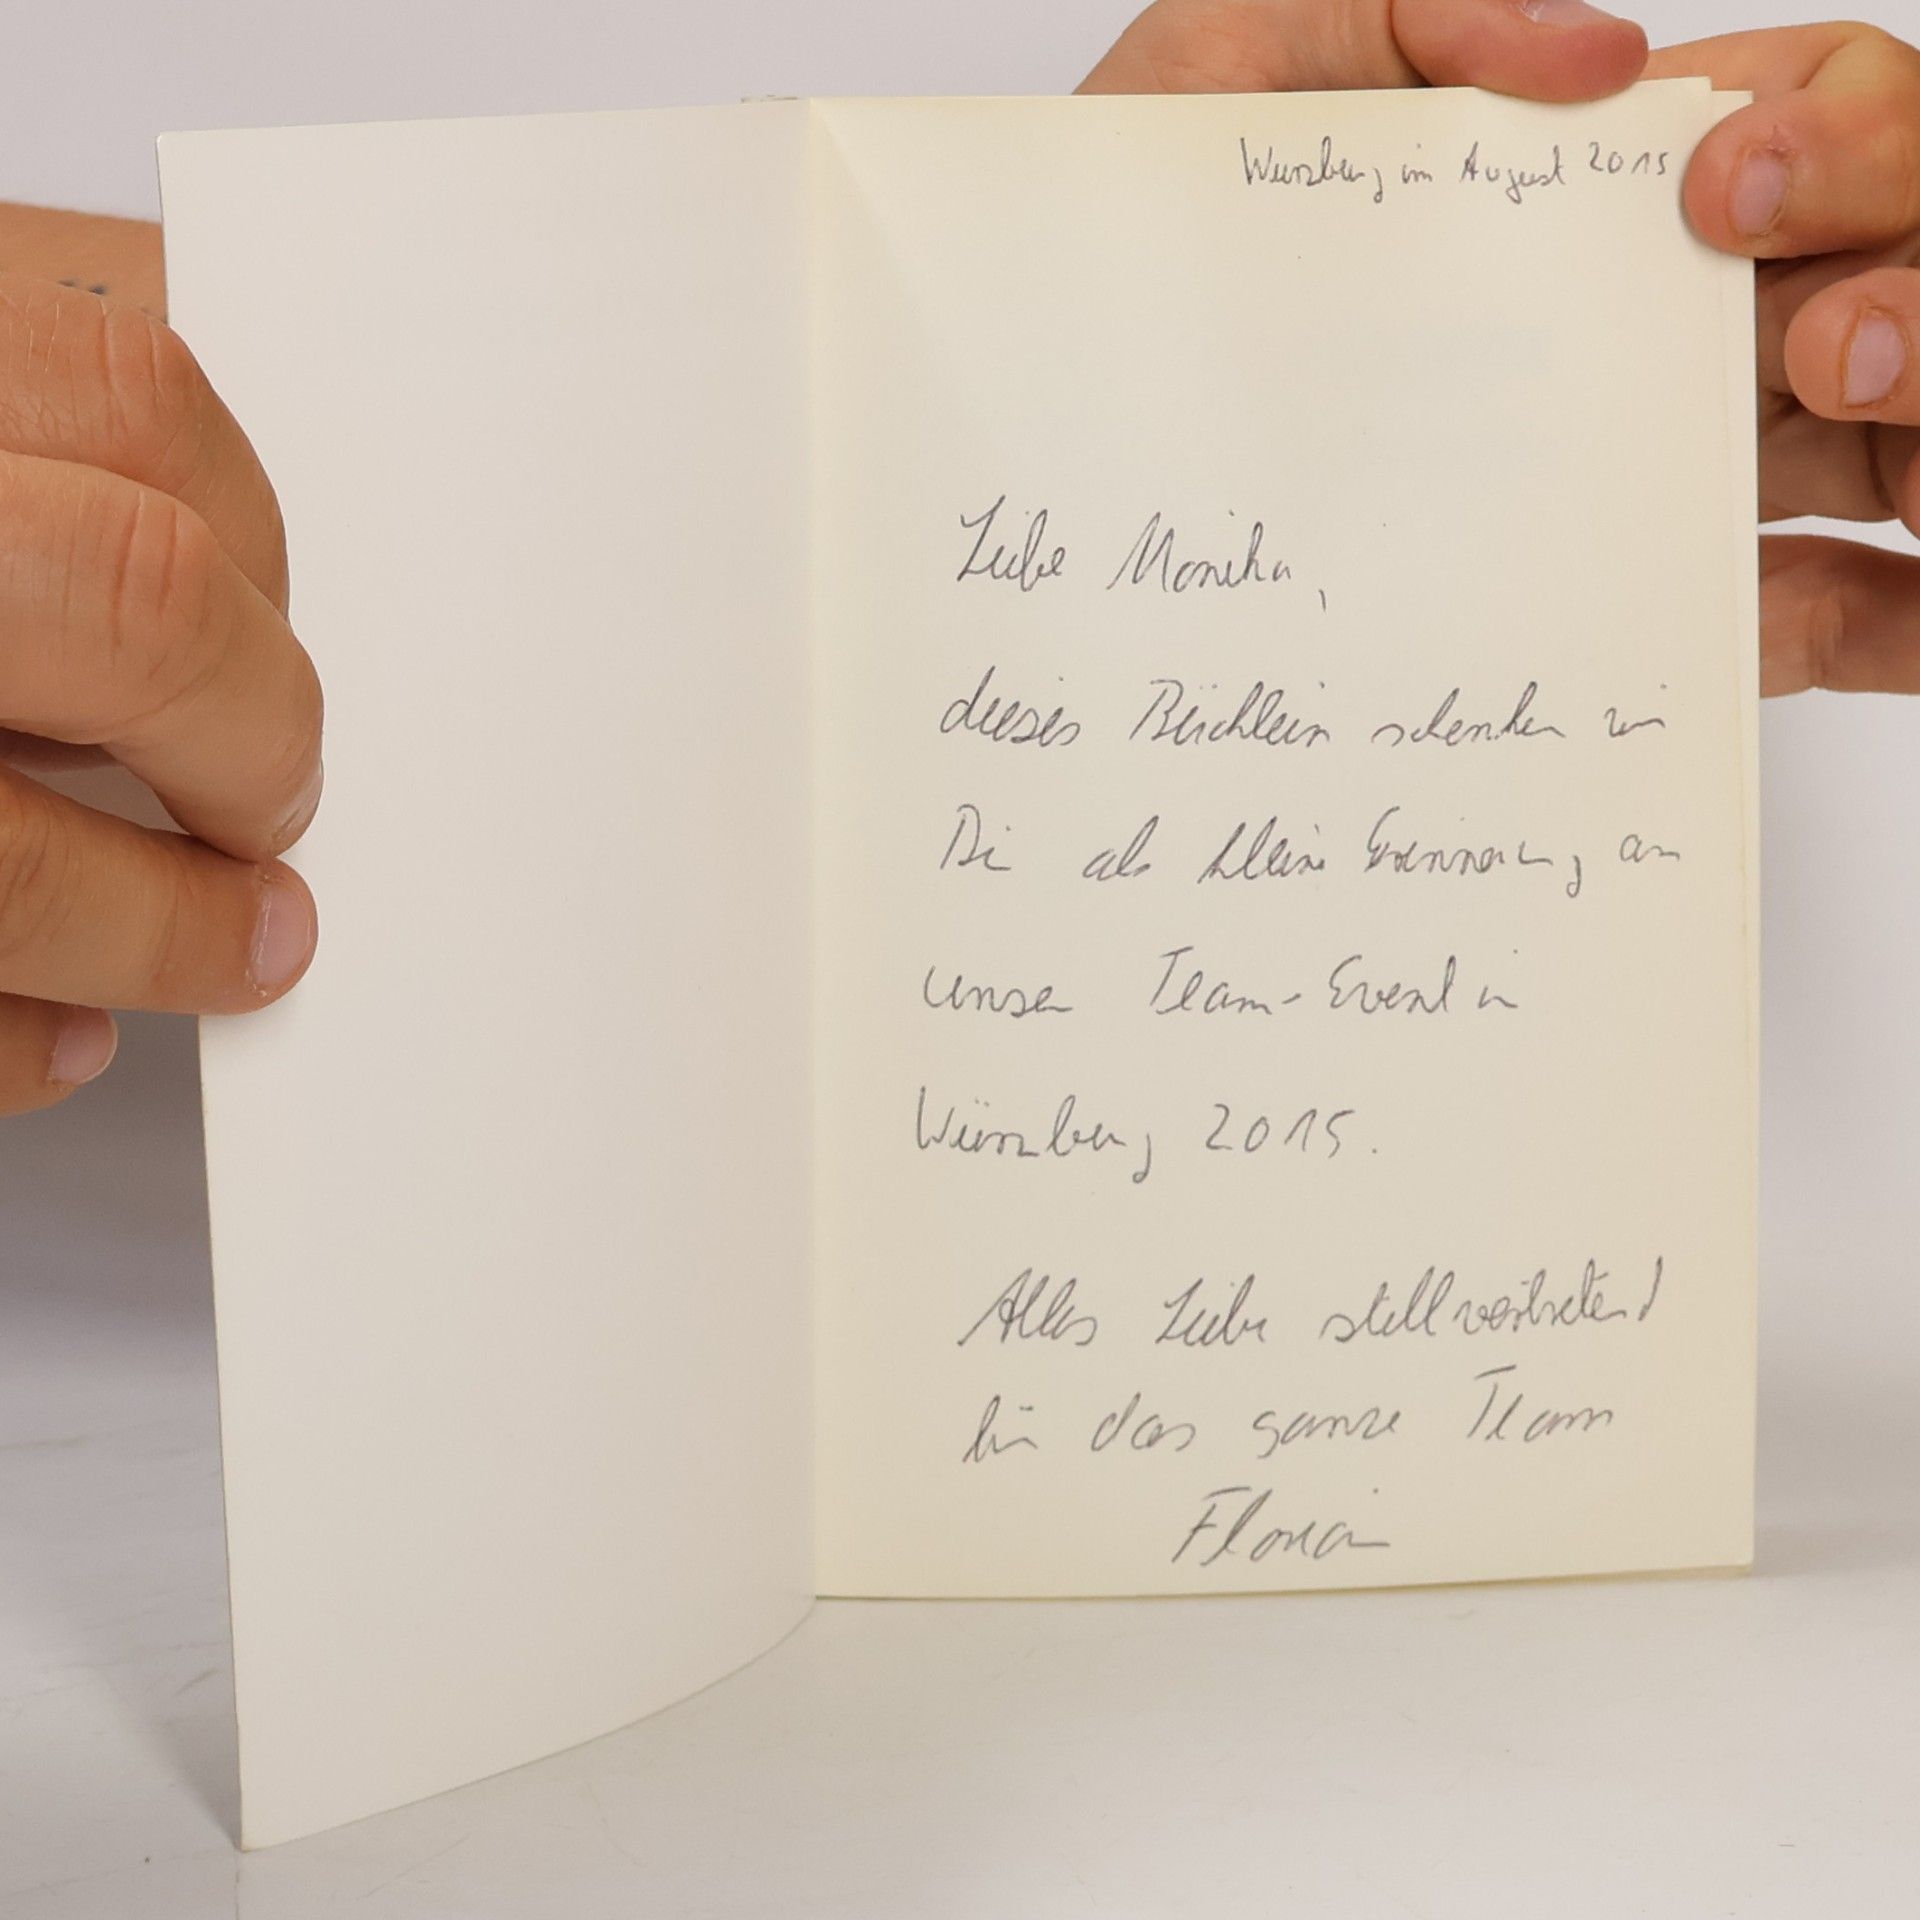 Würzburg im August 2015
Liebe Monika,
dieses Büchlein schenken wir
Dir als kleine Erinnerung an
unser Team-Event in
Würzburg 2015.
Alles Liebe stellvertretend
für das ganze Team
Florian